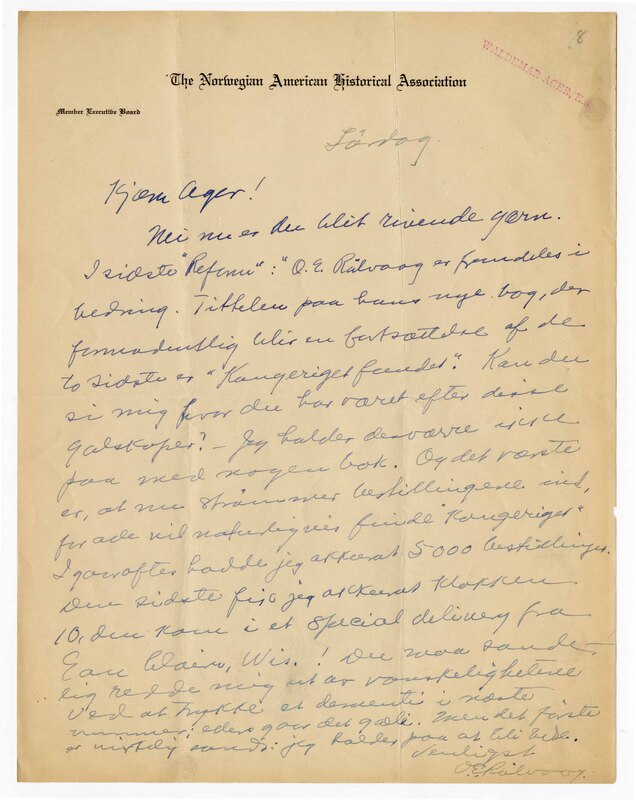 8
WALDEMAR AGER, E
The Norwegian American Historical Association
Member Executive Board
Lørdag
Kjære Ager!
Nei nu er du blit rivende gærn.
I sidste "Reform": "O. E. Rølvaag er fremdeles i
bedring. Tittelen paa hans nye bog, der
formodentlig blir en fortsættelse af de
to sidste er "Kongeriget fundet". Kan du
si mig hvor du har været efter disse
galskaper? – Jeg holder desværre ikke
paa med nogen bok. Og det værste
er, at nu strømmer bestillingene ind,
for alle vil naturligvis finde "Kongeriget"
Igaaraftes hadde jeg akkurat 5000 bestillinger.
Den sidste fik jeg akkurat klokken
10, den kom i et special delivery fra
Eau Claire, Wis.! Du maa sande-
lig redde mig ut av vanskelighetene
ved at trykke et dementi i næste
nummer; eders gaar det gali. Men det første
er virkelig sandt: jeg holder paa at bli
Venligst
O. E. Rølvaag.